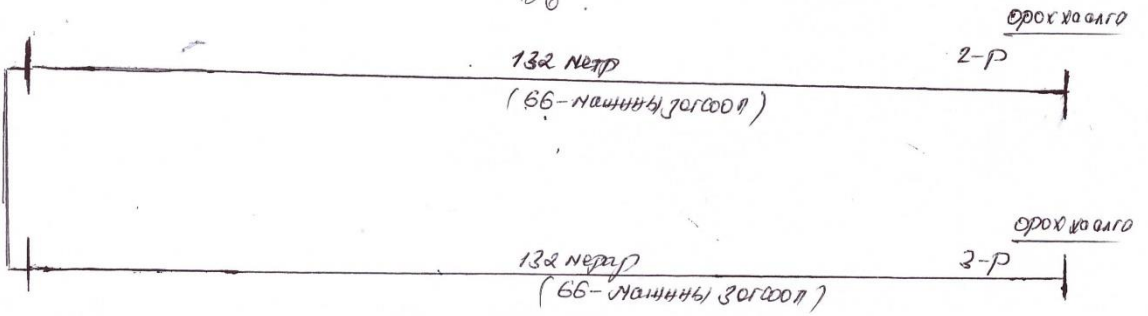 орох хаалга
132 метр 2-р
(66-машины зогсоол)
орох хаалга
132 метр 3-р
(66-машины зогсоол)